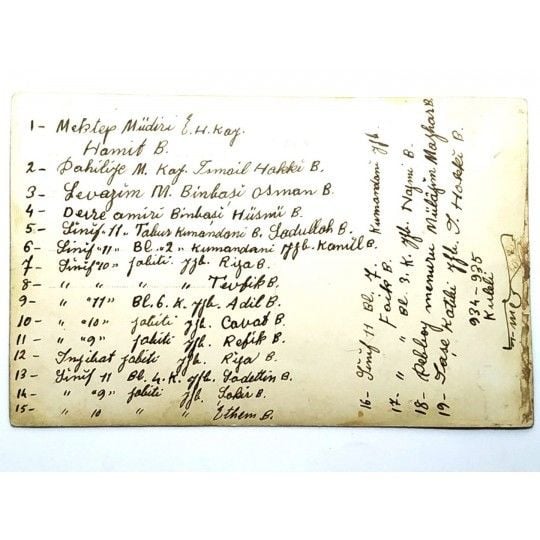 1- Mektep Müdiri E. H. Kay.
Hamit B.
2- Dahiliye M. Kay. İsmail Hakkı B.
3- Levazim M. Binbaşi Osman B.
4- Devre amiri Binbaşi Hüsnü B.
5- Sinif "11. Tabur Kumandani B. Sadullah B.
6- Sinif "11" Bl. "2" Kumandani Yzb. Kamil B.
7- Sinif "10" zabiti Yzb. Riza B.
8- " " " " Tevfik B.
9- " "11" Bl. 6. K. Yzb. Adil B.
10- " "10" zabiti Yzb. Cavat B.
11- " "9" zabiti Yzb. Refik B.
12- İnzibat zabiti Yzb. Riza B.
13- Sinif 11 Bl. 4. K. Yzb. Sadettin B.
14- " "9" zabiti Yzb. Şakir B.
15- " 10 " " Ethem B.
16- Sinif 11 Bl. 7. Kumandani Yzb.
Faik B.
17- " " Bl. 3. K. Yzb. Nazmi B.
18- Debboy memuru Mülâzim Mazhar B.
19- İaşe Katibi Yzb. İ. Hakkı B.
934-935
Kuleli